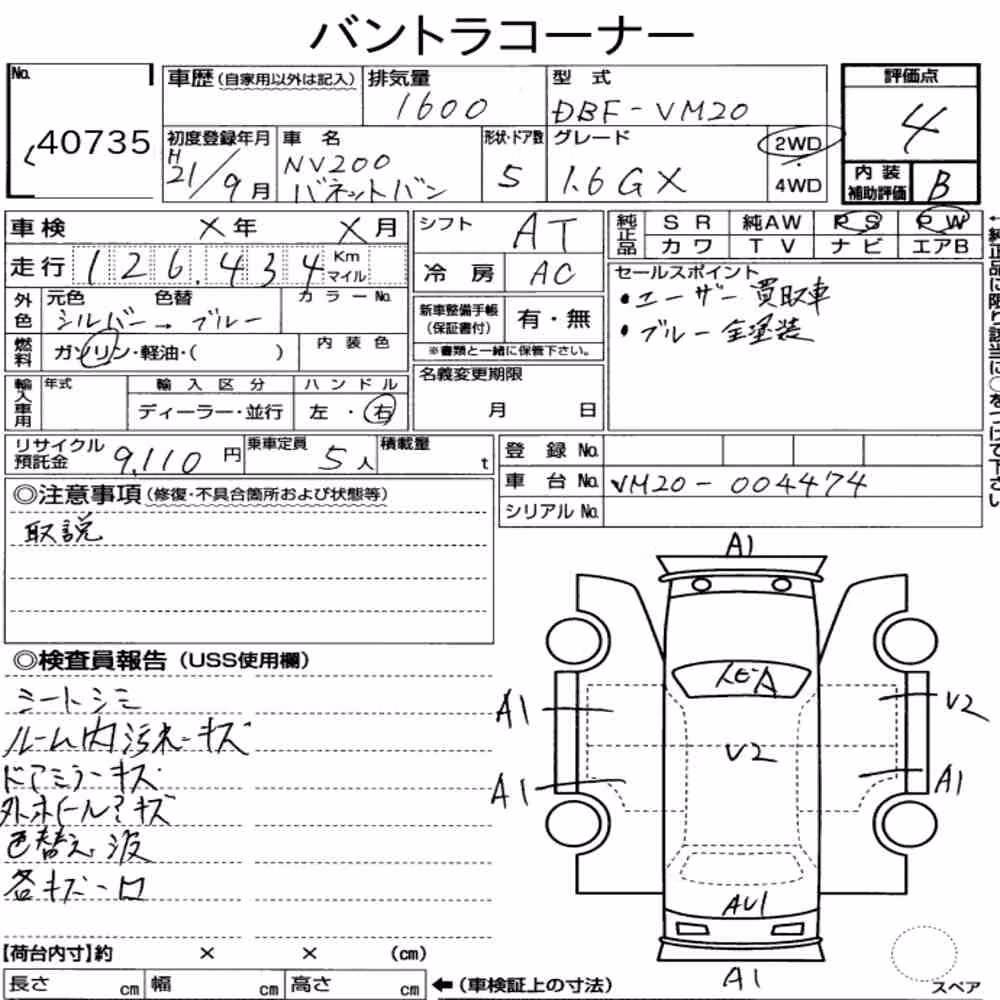 バントラコーナー
No. 40735
車歴(自家用以外は記入)
排気量 1600
型 式 DBF-VM20
評価点 4
初度登録年月 H21/9月
車 名 NV200 バネットバン
形状・ドア数 5
グレード 1.6 GX
2WD・4WD
内 装 補助評価 B
車検 ×年 ×月
シフト AT
純正品 SR 純AW PS PW
カワ TV ナビ エアB
走行 126,434 Km マイル
冷 房 AC
セールスポイント
・ユーザー買取車
・ブルー全塗装
外色 元色 色替 カラーNo.
シルバー→ブルー
新車整備手帳(保証書付) 有・無
※書類と一緒に保管下さい。
燃料 ガソリン・軽油・( ) 内装色
名義変更期限
月 日
輸入車用 年式 輸入区分 ハンドル
ディーラー・並行 左・右
←純正品に限り該当に○をつけて下さい
リサイクル預託金 9,110円
乗車定員 5人
積載量 t
登録No.
車台No. VM20-004474
シリアルNo.
◎注意事項(修復・不具合箇所および状態等)
取説
◎検査員報告(USS使用欄)
シートシミ
ルーム内汚れ・キズ
ドアミラーキズ
色替え 波
A1
A1
V2
V2
A1
A1
AU1
A1
【荷台内寸】約 × × (cm)
長さ cm 幅 cm 高さ cm
←(車検証上の寸法)
スペア